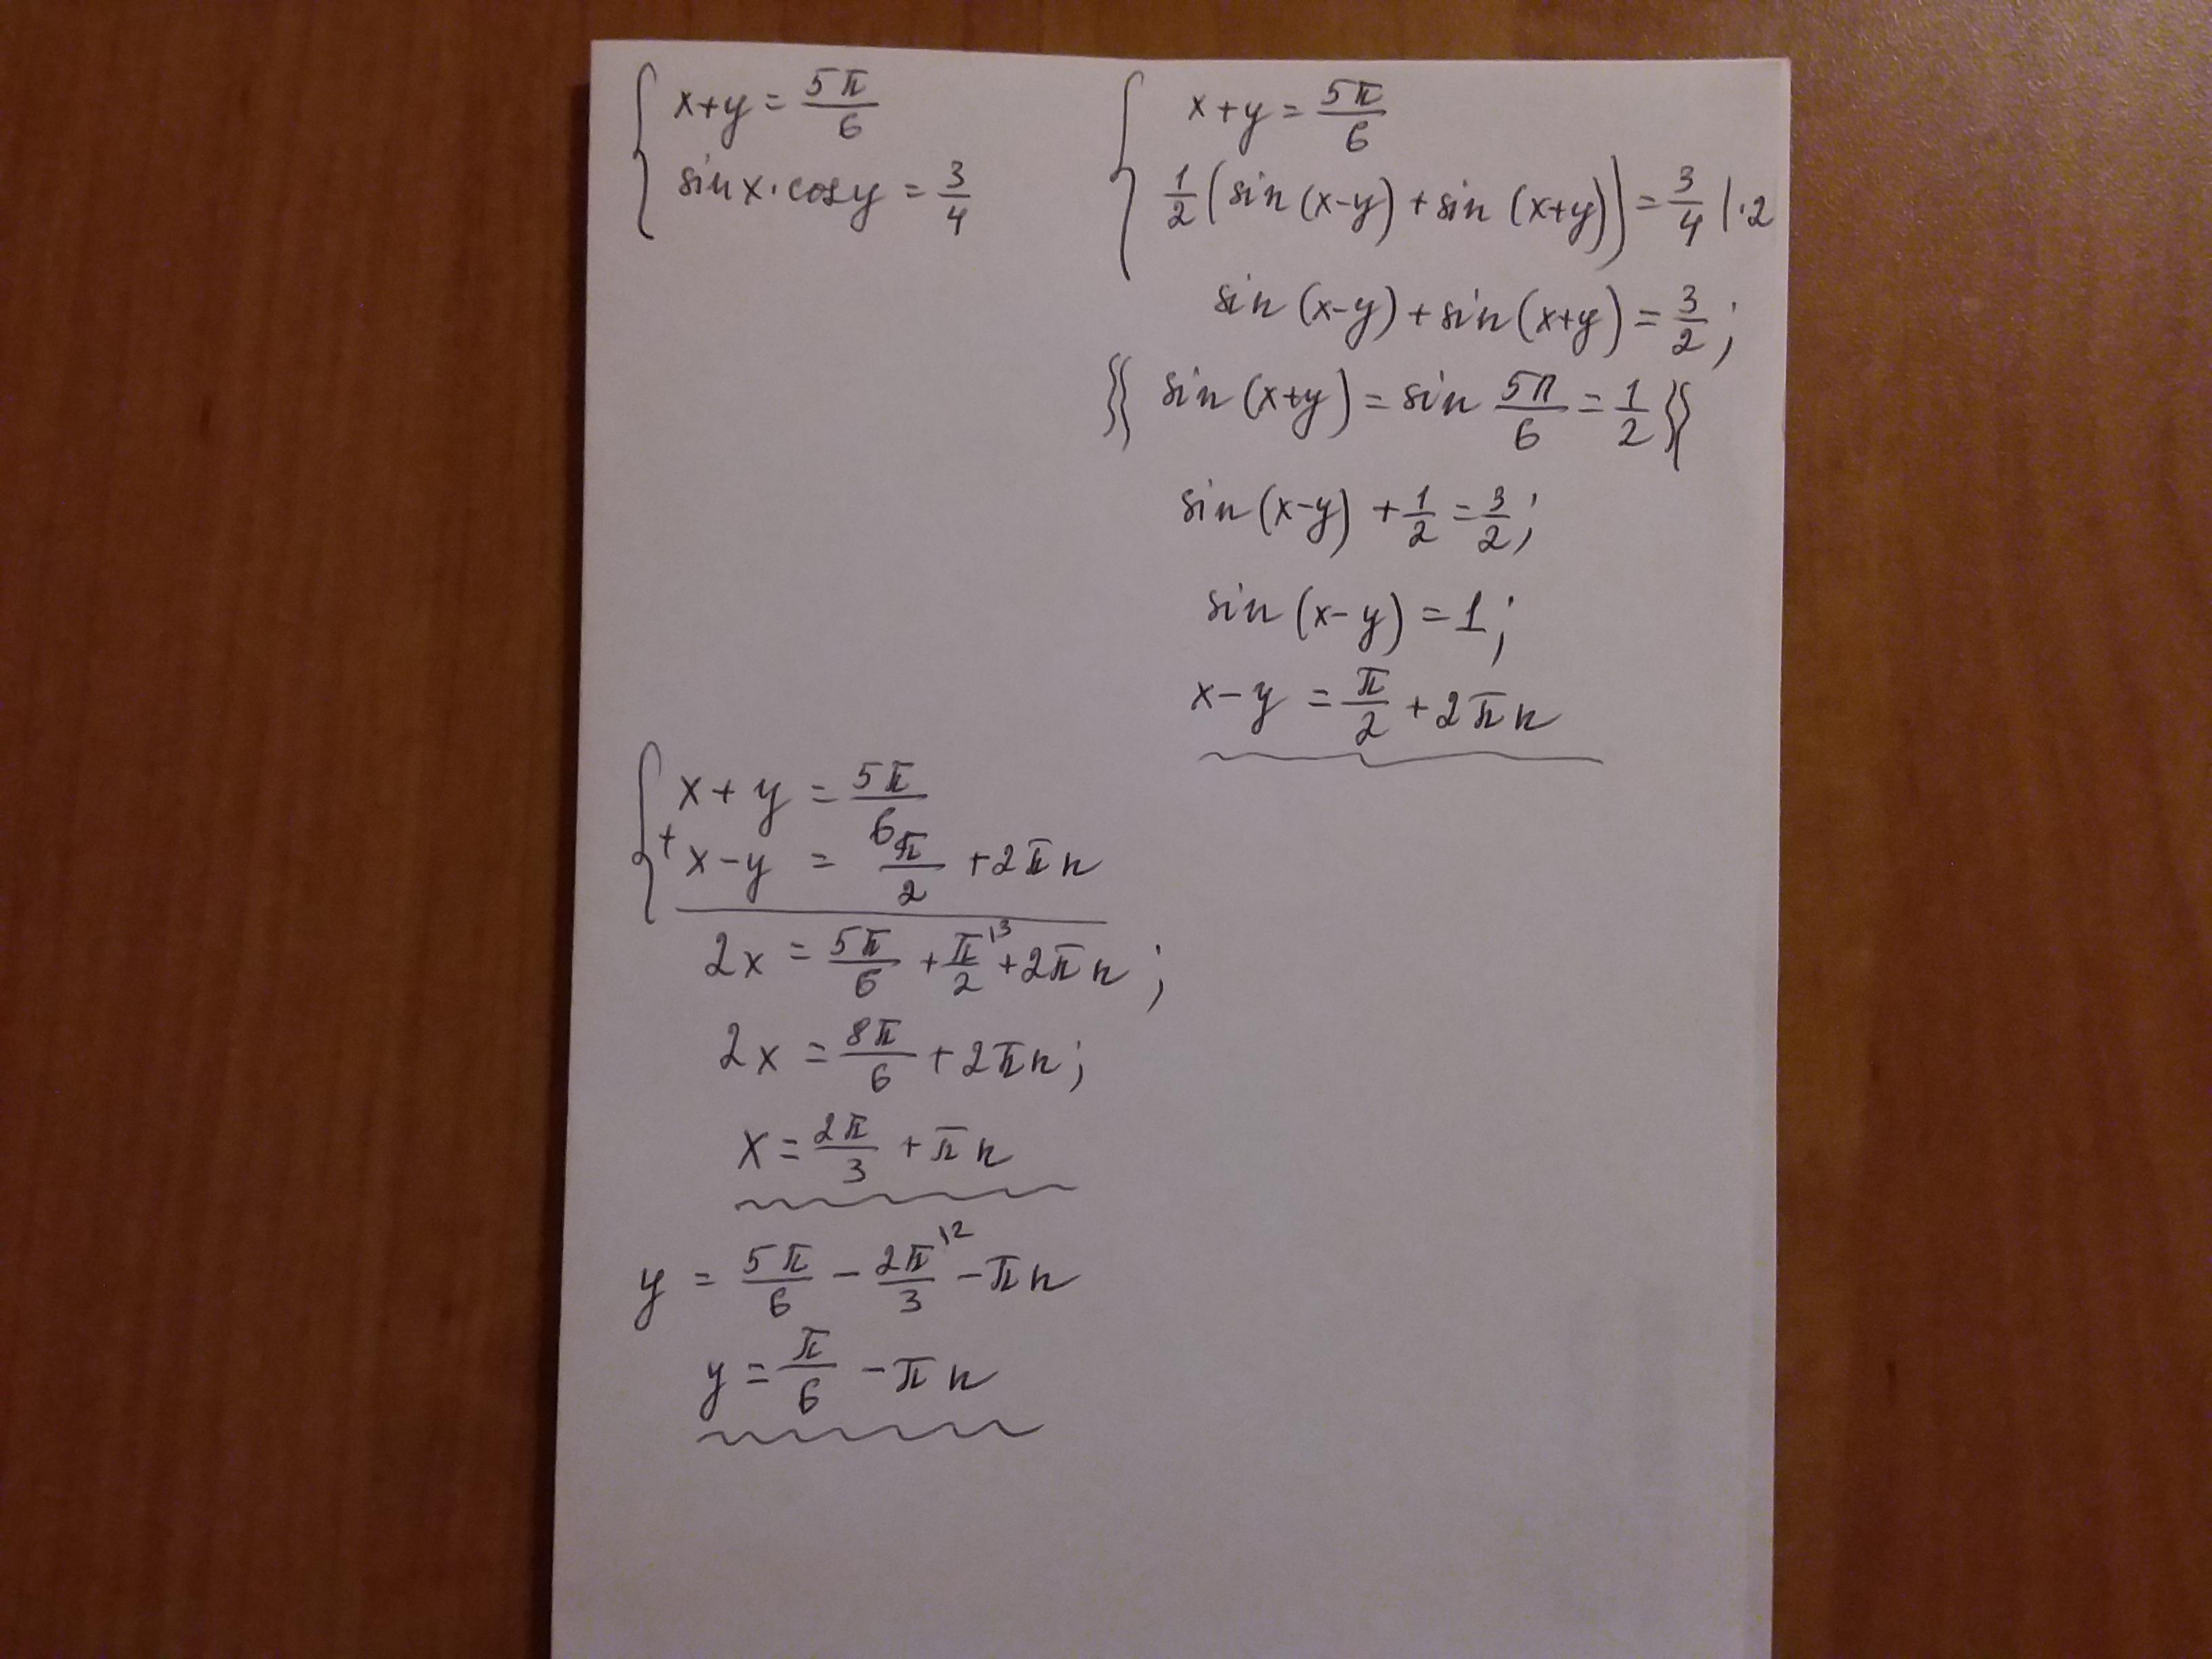 x+y = 5π/6
sin x · cos y = 3/4
x+y = 5π/6
1/2 (sin (x-y) + sin (x+y)) = 3/4 | ·2
sin (x-y) + sin (x+y) = 3/2 ;
{{ sin (x+y) = sin 5π/6 = 1/2 }}
sin (x-y) + 1/2 = 3/2 ;
sin (x-y) = 1 ;
x-y = π/2 + 2πn
x + y = 5π/6
+ x-y = π/2 + 2πn
2x = 5π/6 + π/2 \3 + 2πn ;
2x = 8π/6 + 2πn ;
x = 2π/3 + πn
y = 5π/6 - 2π/3 \2 - πn
y = π/6 - πn